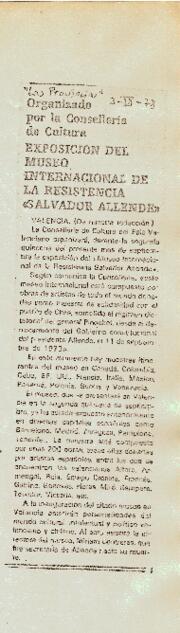 "Las Provincias" 3-IX-78
Organizado
por la Consellería
de Cultura
EXPOSICION DEL
MUSEO
INTERNACIONAL DE
LA RESISTENCIA
«SALVADOR ALLENDE»
VALENCIA. (De nuestra redacción.)
La Consellería de Cultura del País Va-
lenciano organizará, durante la segunda
quincena del presente mes de septiem-
bre la exposición del «Museo Internacio-
nal de la Resistencia Salvador Allende».
Según comunica la Consellería, este
museo internacional está compuesto por
obras de artistas de todo el mundo
como muestra de solidaridad por el
pueblo de Chile, sometido al régimen dic-
tatorial del general Pinochet, desde el de-
rrocamiento del Gobierno constitucional
del presidente Allende, el 11 de septiem-
bre de 1973».
En este momento hay muestras
del museo en Canadá, Colombia,
Cuba, EE. UU., Francia, Italia, México,
Panamá, Polonia, Suecia y Venezuela.
El museo, que se presentará en Valencia
en la segunda quincena de septiem-
bre, ya ha estado expuesto
en diversas capitales españolas como
Barcelona, Madrid, Zaragoza, Pamplona,
Tenerife... La muestra está compuesta
por unas 200 obras,
por artistas españoles, entre los que se
encuentran los valencianos Alfaro, Ar-
mengol, Boix,
Genovés,
Teixidor, Victoria, etc.
A la inauguración del citado museo en
Valencia asistirán personalidades del
mundo cultural, intelectual y político va-
lenciano y chileno.
del museo, Miriam Contreras, que
fue secretaria de Allende